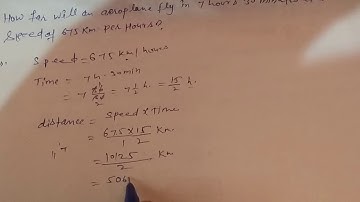 How far will an aeroplane fly in 7 hours 30 minutes
Speed of 675 Km per Hours?
Speed = 675 Km / hours
Time = 7 h. 30 min
= 7 30/60 = 7 1/2 h. = 15/2 h.
distance = Speed × Time
" " = 675 × 15 / 1 2 Km
= 10125 / 2 Km
= 506